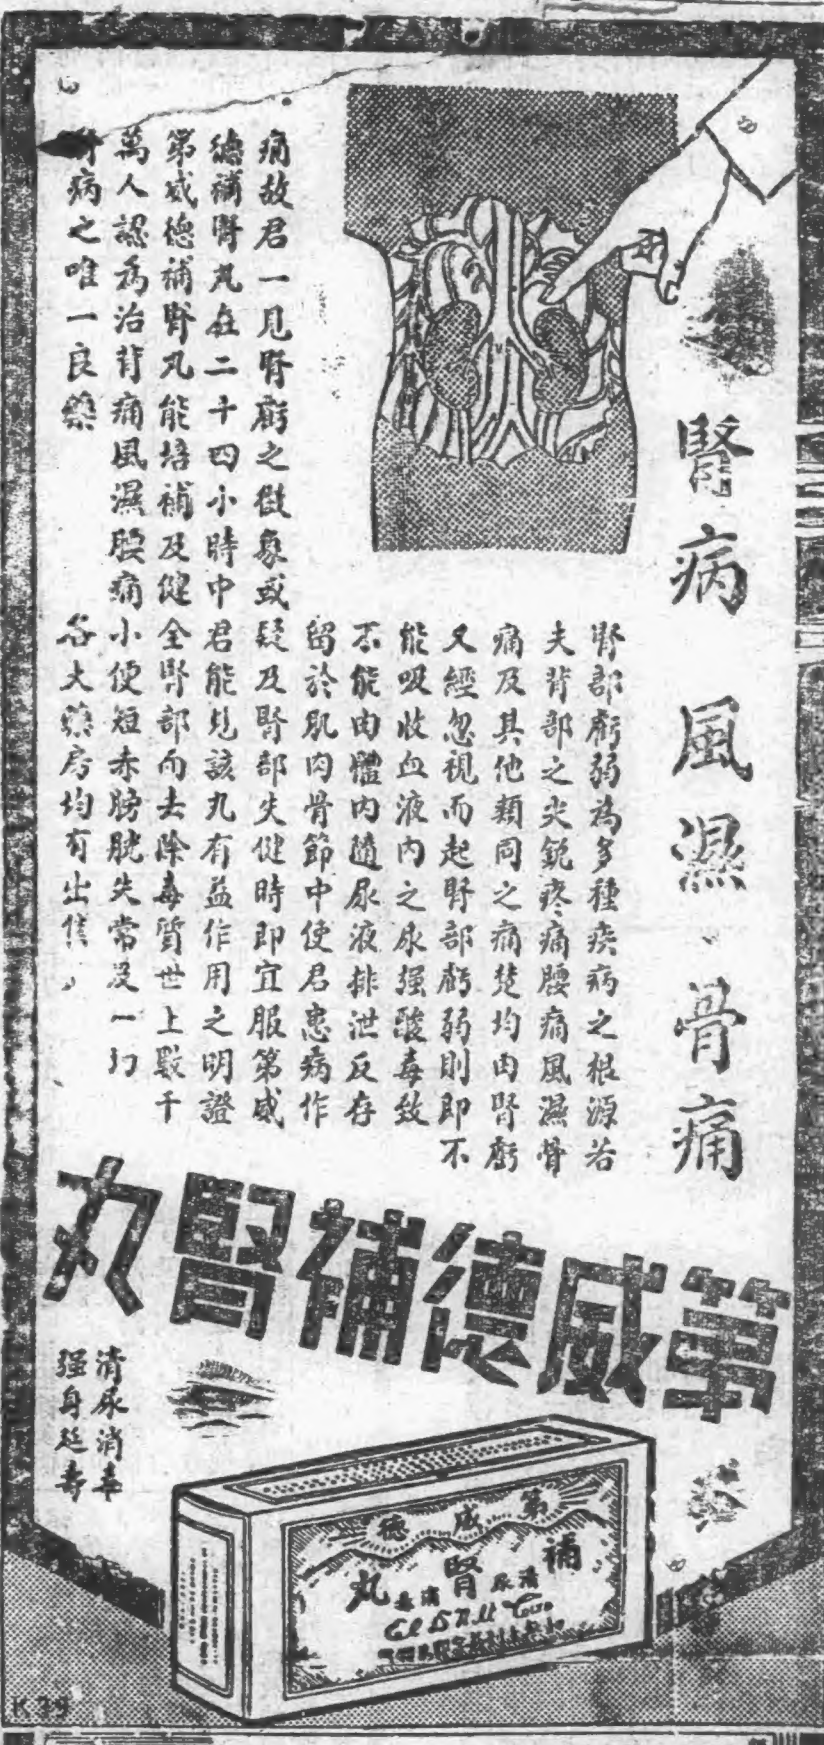 腎病 風濕、骨痛
腎部虧弱為多種疾病之根源若
夫背部之尖銳疼痛腰痛風濕骨
痛及其他類同之痛楚均由腎虧
又經忽視而起腎部虧弱則即不
能吸收血液內之尿强酸毒致
不能由體內隨尿液排泄反存
留於肌肉骨節中使君患病作
痛故君一見腎虧之徵象或疑及腎部失健時即宜服第威
德補腎丸在二十四小時中君能見該丸有益作用之明證
第威德補腎丸能培補及健全腎部而去除毒質世上數千
萬人認為治背痛風濕腰痛小便短赤膀胱失常及一切
腎病之唯一良藥 各大藥房均有出售
第威德補腎丸
清尿消毒
强身延壽
第威德
補腎丸
清尿消毒
K 39